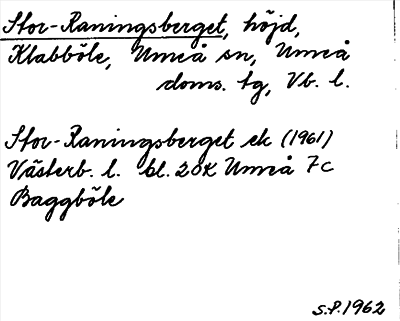 Stor-Raningsberget, höjd,
Klabböle, Umeå sn, Umeå
doms. tg, Vb. l.
Stor-Raningsberget ek (1961)
Västerb. l. bl. 20K Umeå 7c
Baggböle
S.P. 1962